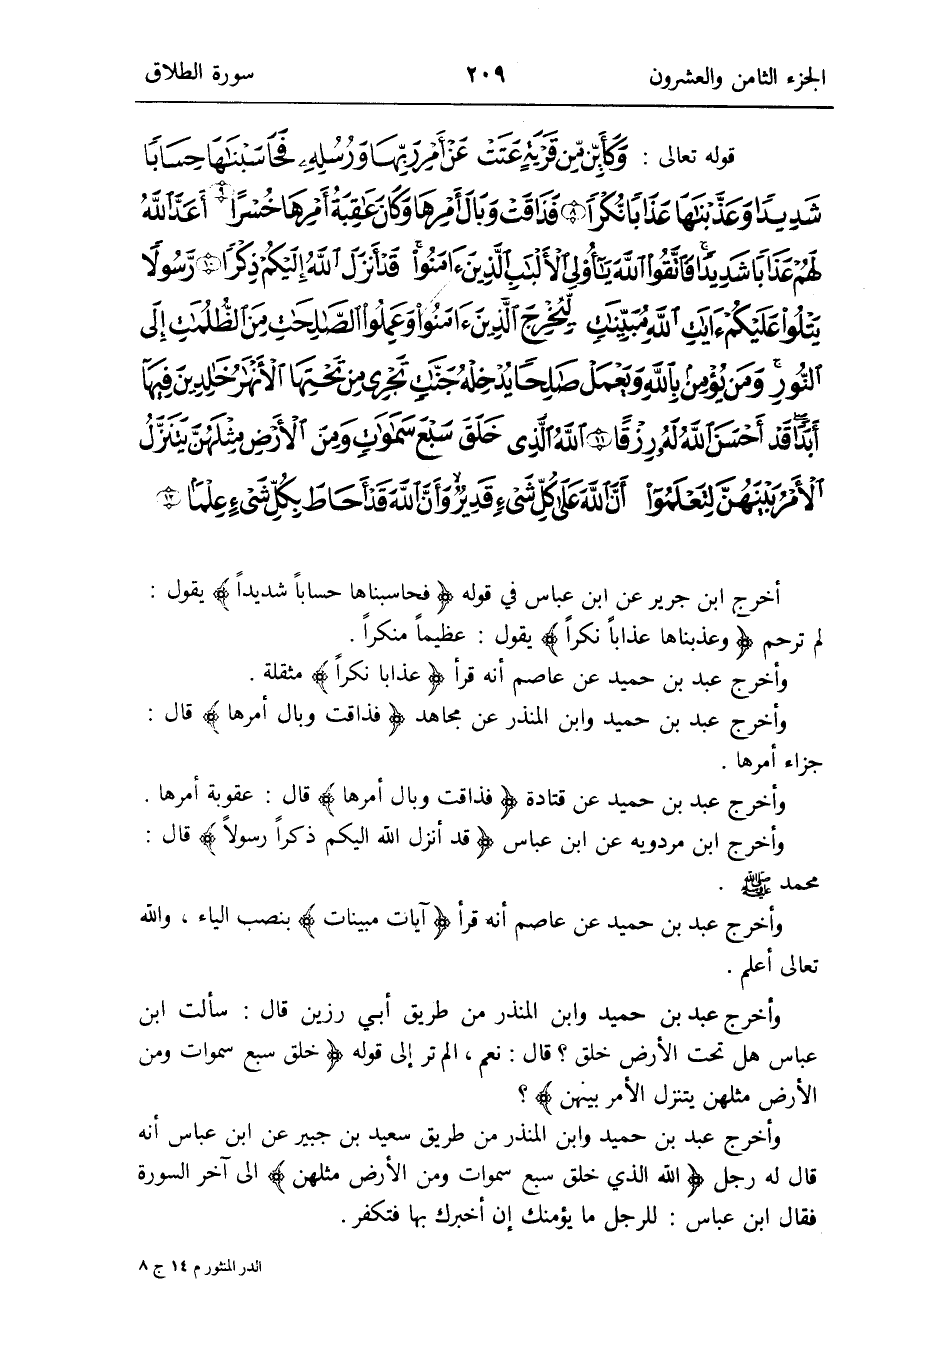 الجزء الثامن والعشرون ٢٠٩ سورة الطلاق
قوله تعالى : وَكَأَيِّن مِّن قَرْيَةٍ عَتَتْ عَنْ أَمْرِ رَبِّهَا وَرُسُلِهِۦ فَحَاسَبْنَٰهَا حِسَابًا
شَدِيدًا وَعَذَّبْنَٰهَا عَذَابًا نُّكْرًا ۝٨ فَذَاقَتْ وَبَالَ أَمْرِهَا وَكَانَ عَٰقِبَةُ أَمْرِهَا خُسْرًا ۝٩ أَعَدَّ ٱللَّهُ
لَهُمْ عَذَابًا شَدِيدًا ۖ فَٱتَّقُوا۟ ٱللَّهَ يَٰٓأُو۟لِى ٱلْأَلْبَٰبِ ٱلَّذِينَ ءَامَنُوا۟ ۚ قَدْ أَنزَلَ ٱللَّهُ إِلَيْكُمْ ذِكْرًا ۝١٠ رَّسُولًا
يَتْلُوا۟ عَلَيْكُمْ ءَايَٰتِ ٱللَّهِ مُبَيِّنَٰتٍ لِّيُخْرِجَ ٱلَّذِينَ ءَامَنُوا۟ وَعَمِلُوا۟ ٱلصَّٰلِحَٰتِ مِنَ ٱلظُّلُمَٰتِ إِلَى
ٱلنُّورِ ۚ وَمَن يُؤْمِنۢ بِٱللَّهِ وَيَعْمَلْ صَٰلِحًا يُدْخِلْهُ جَنَّٰتٍ تَجْرِى مِن تَحْتِهَا ٱلْأَنْهَٰرُ خَٰلِدِينَ فِيهَآ
أَبَدًا ۖ قَدْ أَحْسَنَ ٱللَّهُ لَهُۥ رِزْقًا ۝١١ ٱللَّهُ ٱلَّذِى خَلَقَ سَبْعَ سَمَٰوَٰتٍ وَمِنَ ٱلْأَرْضِ مِثْلَهُنَّ يَتَنَزَّلُ
ٱلْأَمْرُ بَيْنَهُنَّ لِتَعْلَمُوٓا۟ أَنَّ ٱللَّهَ عَلَىٰ كُلِّ شَىْءٍ قَدِيرٌ وَأَنَّ ٱللَّهَ قَدْ أَحَاطَ بِكُلِّ شَىْءٍ عِلْمًۢا ۝١٢
أخرج ابن جرير عن ابن عباس في قوله ﴿ فحاسبناها حساباً شديداً ﴾ يقول :
لم ترحم ﴿ وعذبناها عذاباً نكراً ﴾ يقول : عظيماً منكراً .
وأخرج عبد بن حميد عن عاصم أنه قرأ ﴿ عذابا نكراً ﴾ مثقلة .
وأخرج عبد بن حميد وابن المنذر عن مجاهد ﴿ فذاقت وبال أمرها ﴾ قال :
جزاء أمرها .
وأخرج عبد بن حميد عن قتادة ﴿ فذاقت وبال أمرها ﴾ قال : عقوبة أمرها .
وأخرج ابن مردويه عن ابن عباس ﴿ قد أنزل الله اليكم ذكراً رسولاً ﴾ قال :
محمد ﷺ .
وأخرج عبد بن حميد عن عاصم أنه قرأ ﴿ آيات مبينات ﴾ بنصب الياء ، والله
تعالى أعلم .
وأخرج عبد بن حميد وابن المنذر من طريق أبي رزين قال : سألت ابن
عباس هل تحت الأرض خلق ؟ قال : نعم ، الم تر إلى قوله ﴿ خلق سبع سموات ومن
الأرض مثلهن يتنزل الأمر بينهن ﴾ ؟
وأخرج عبد بن حميد وابن المنذر من طريق سعيد بن جبير عن ابن عباس أنه
قال له رجل ﴿ الله الذي خلق سبع سموات ومن الأرض مثلهن ﴾ الى آخر السورة
فقال ابن عباس : للرجل ما يؤمنك إن أخبرك بها فتكفر .
الدر المنثور م ١٤ ج ٨